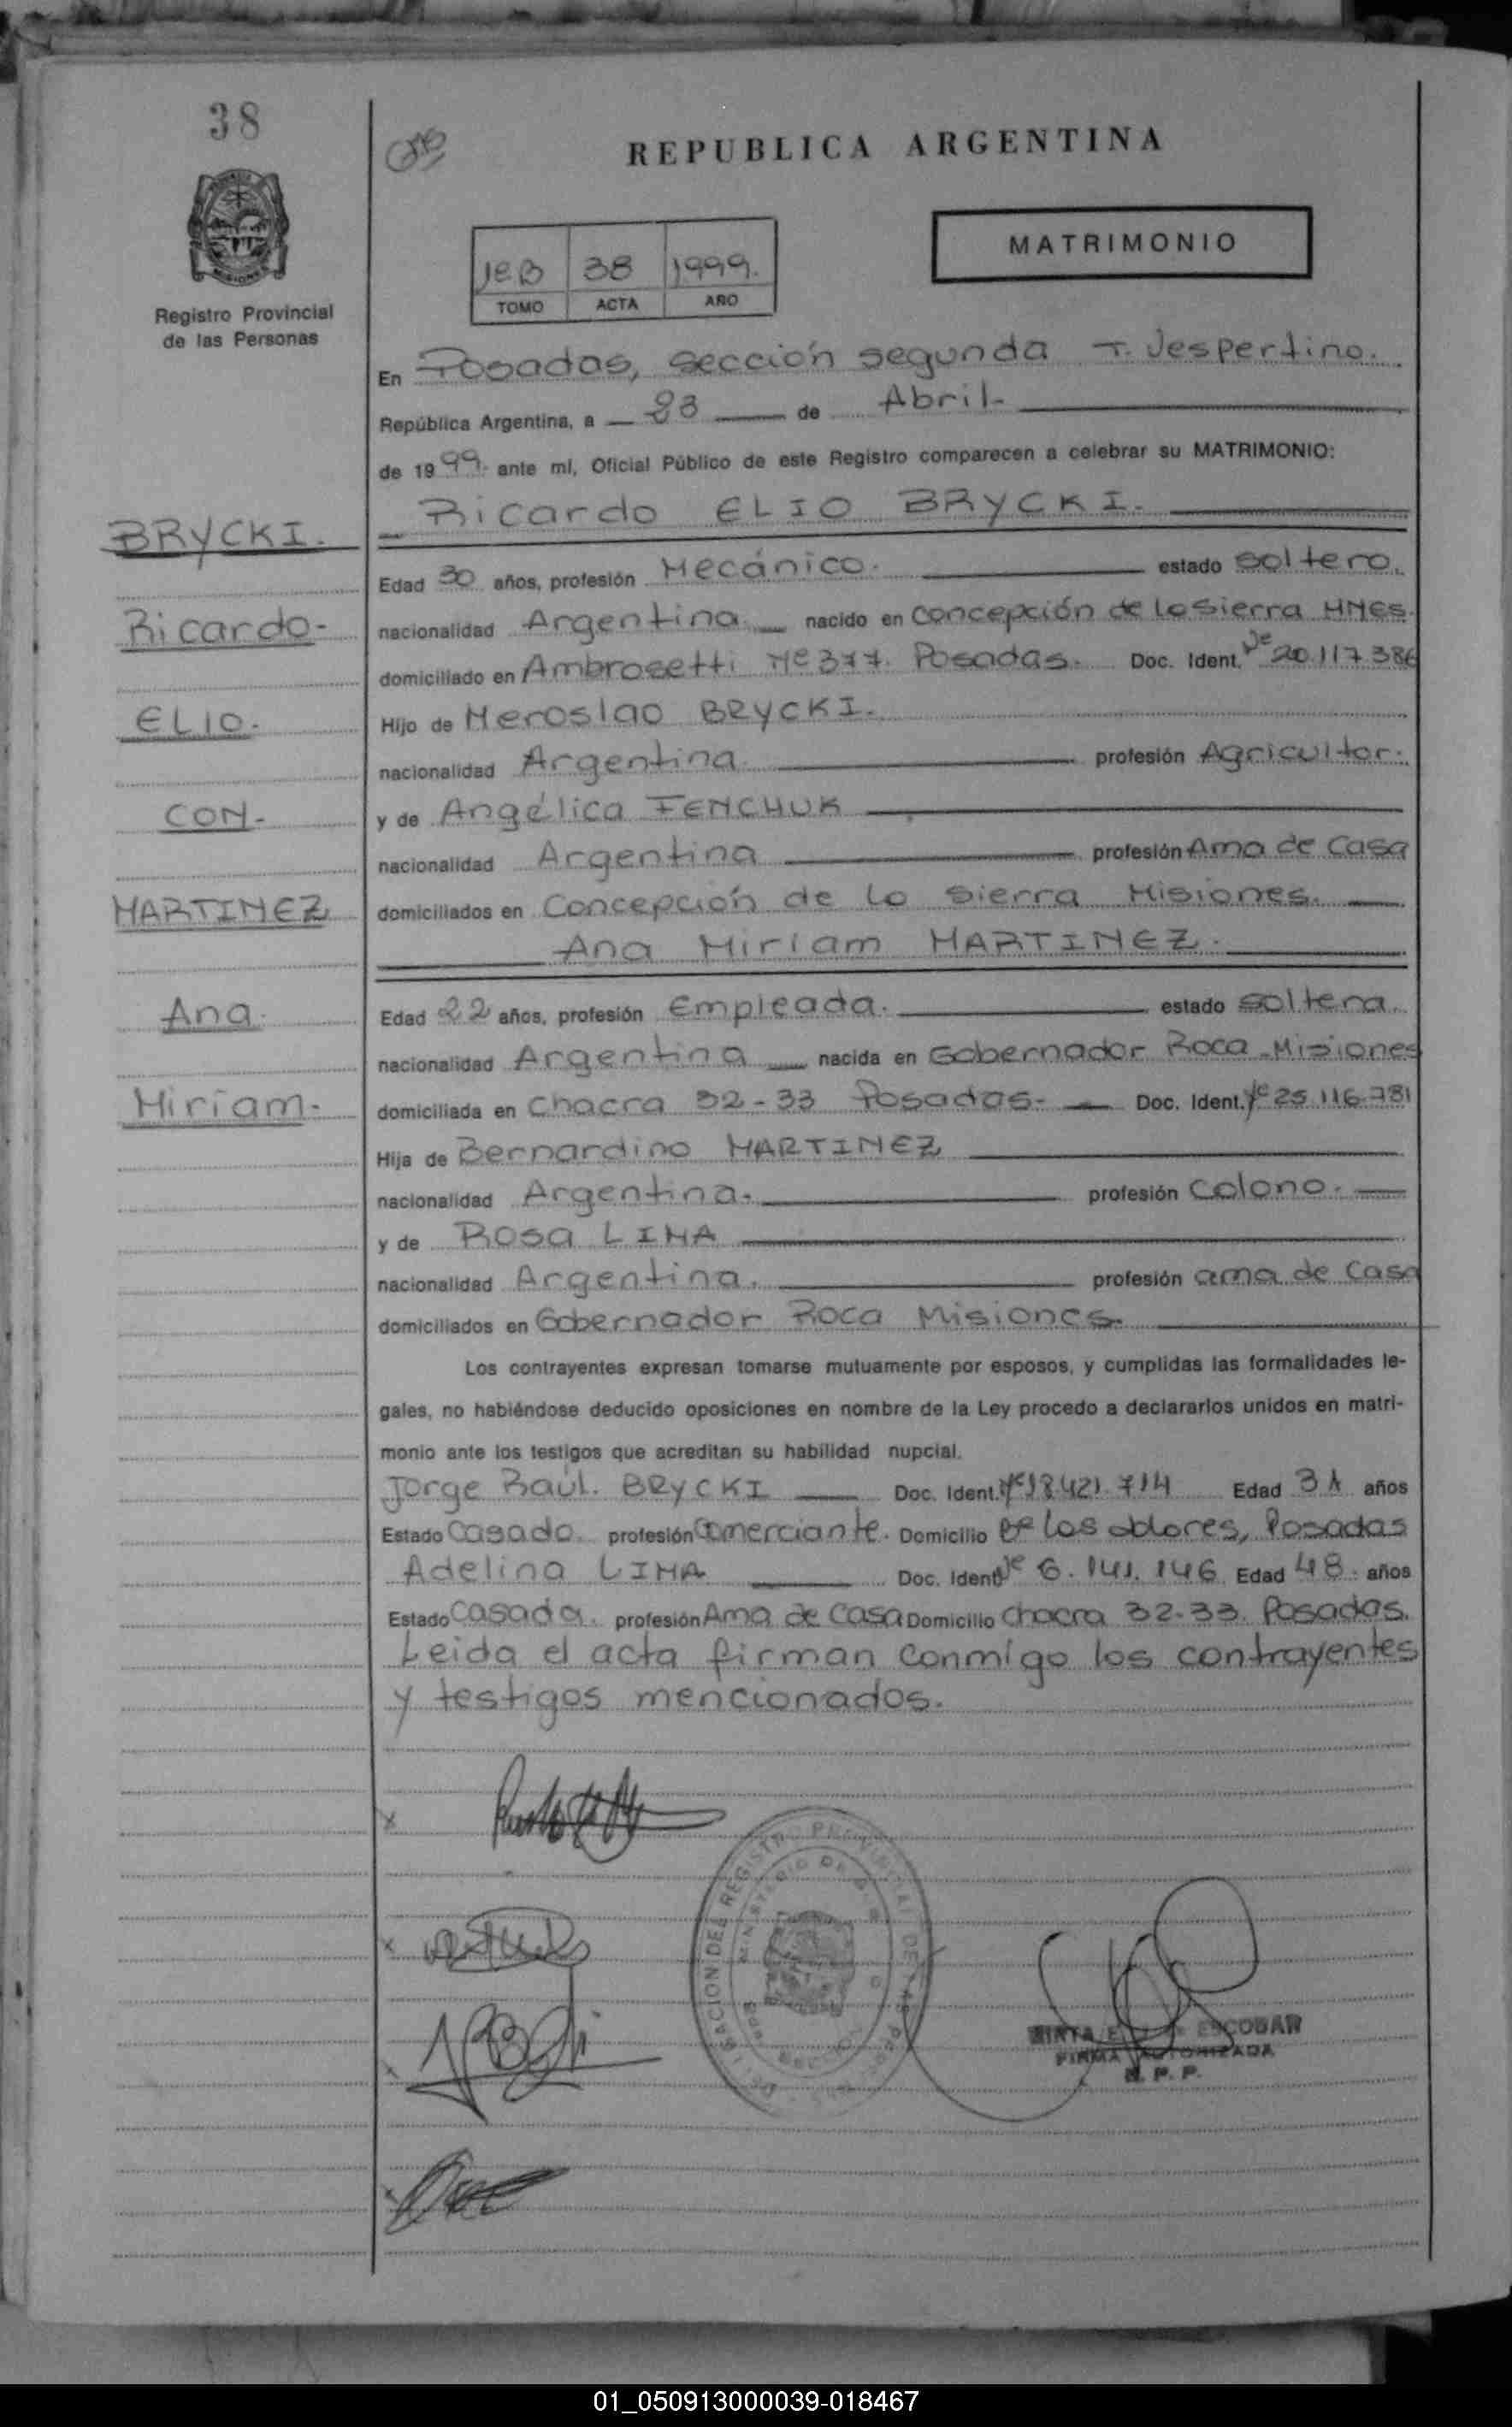 38
REPUBLICA ARGENTINA
MATRIMONIO
1º B 38 1999.
TOMO ACTA AÑO
Registro Provincial
de las Personas
En Posadas, sección segunda T. Vespertino.
República Argentina, a 23 de Abril
de 1999. ante mí, Oficial Público de este Registro comparecen a celebrar su MATRIMONIO:
Ricardo ELIO BRYCKI.
BRYCKI.
Edad 30 años, profesión Mecánico. estado soltero.
Ricardo-
nacionalidad Argentina nacido en Concepción de La Sierra MNES.
domiciliado en Ambrosetti Nº 377. Posadas. Doc. Ident. Nº 20.117.386
ELIO.
Hijo de Meroslao BRYCKI.
nacionalidad Argentina profesión Agricultor.
CON-
y de Angélica FENCHUK
nacionalidad Argentina profesión Ama de Casa
MARTINEZ
domiciliados en Concepción de La Sierra Misiones.
Ana Miriam MARTINEZ.
Ana.
Edad 22 años, profesión Empleada. estado soltera.
nacionalidad Argentina nacida en Gobernador Roca-Misiones
Miriam-
domiciliada en Chacra 32-33 Posadas- Doc. Ident. Nº 25.116.781
Hija de Bernardino MARTINEZ
nacionalidad Argentina. profesión Colono.
y de Rosa LIMA
nacionalidad Argentina. profesión ama de Casa
domiciliados en Gobernador Roca Misiones.
Los contrayentes expresan tomarse mutuamente por esposos, y cumplidas las formalidades le-
gales, no habiéndose deducido oposiciones en nombre de la Ley procedo a declararlos unidos en matri-
monio ante los testigos que acreditan su habilidad nupcial.
Jorge Raúl. BRYCKI Doc. Ident. Nº 18.421.714 Edad 31 años
Estado Casado. profesión Comerciante. Domicilio Bº Los Dolores, Posadas
Adelina LIMA Doc. Ident. Nº 6.141.146 Edad 48. años
Estado Casada. profesión Ama de Casa Domicilio Chacra 32-33. Posadas.
Leida el acta firman conmigo los contrayentes
y testigos mencionados.
DELEGACION DEL REGISTRO PROVINCIAL DE LAS PERSONAS
MINISTERIO DE
MIRTA ESCOBAR
FIRMA AUTORIZADA
R. P. P.
01_050913000039-018467